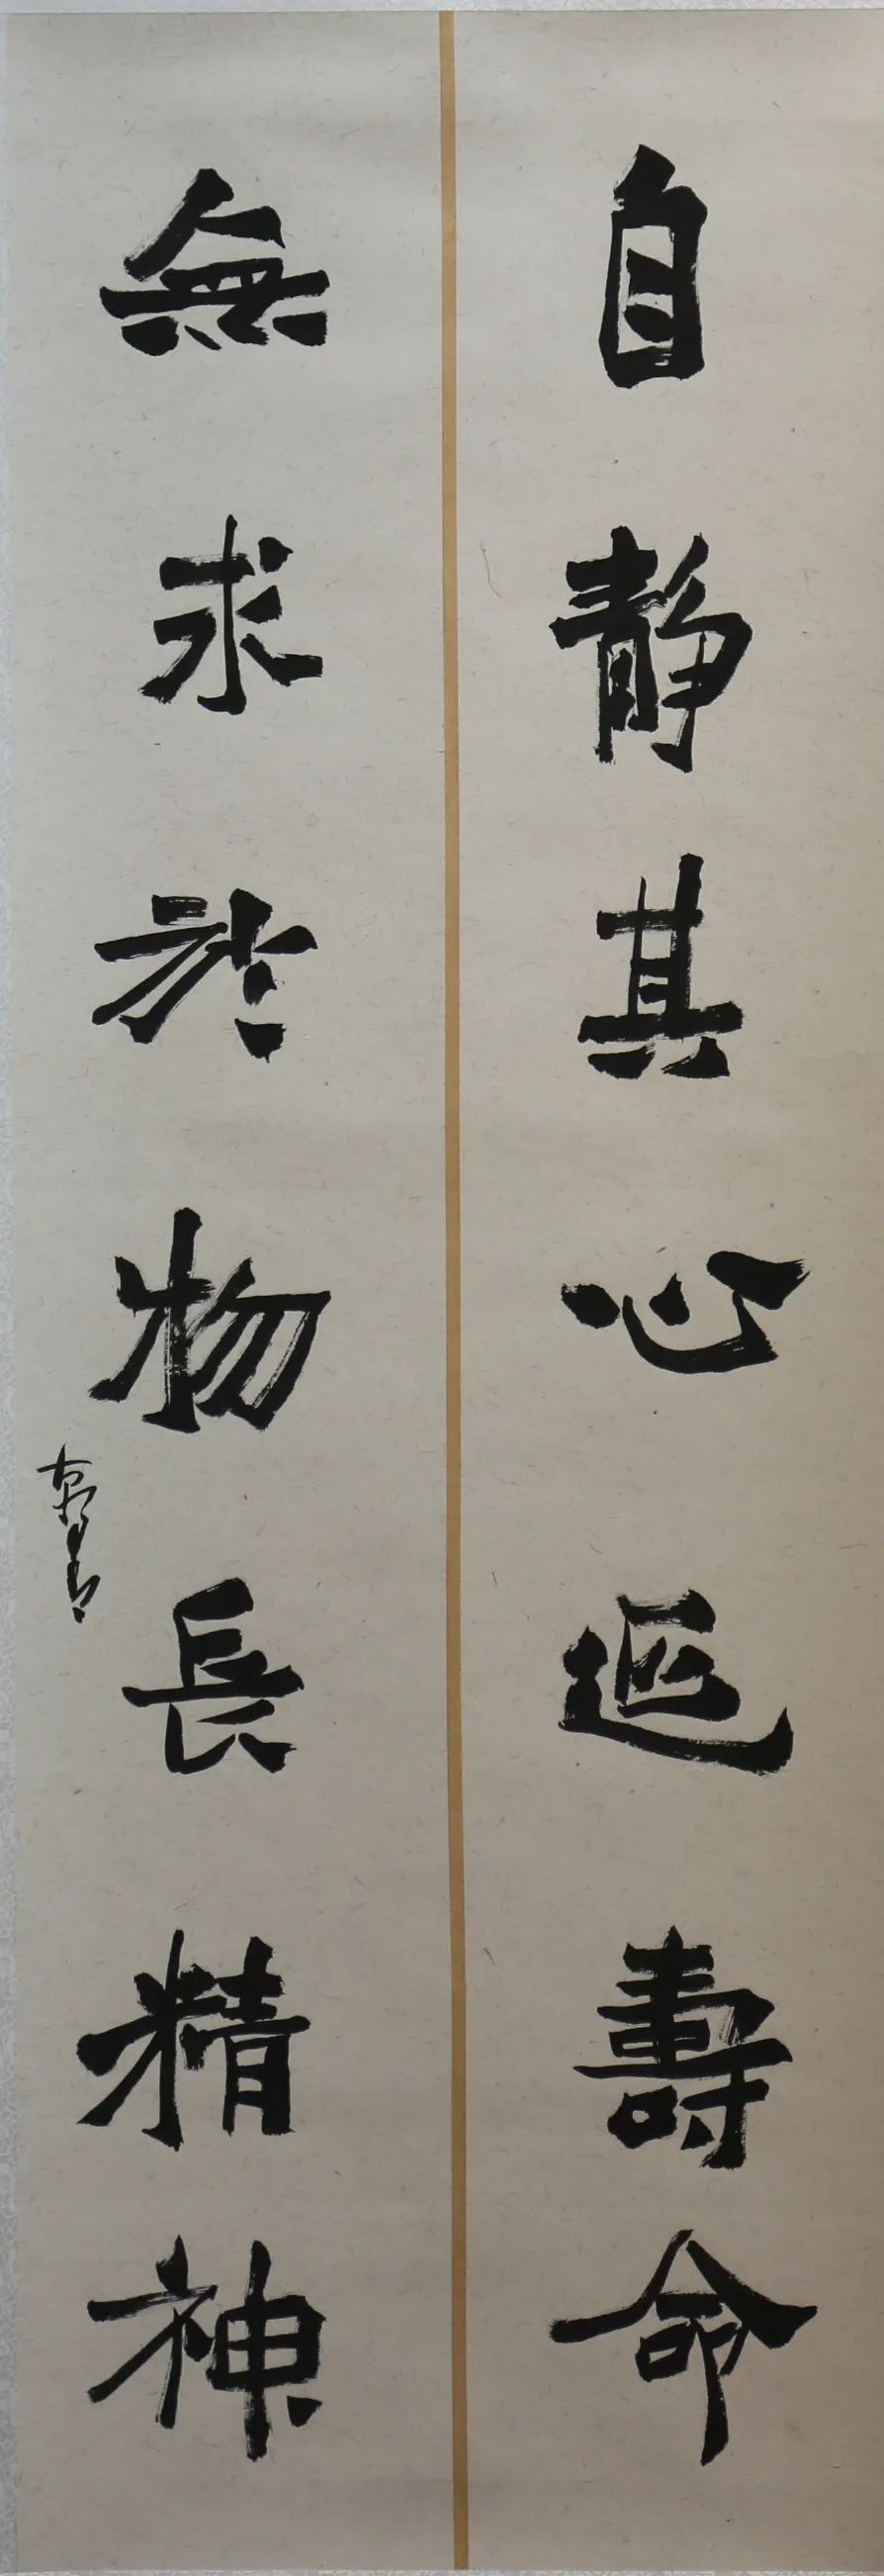 自靜其心延壽命
無求於物長精神